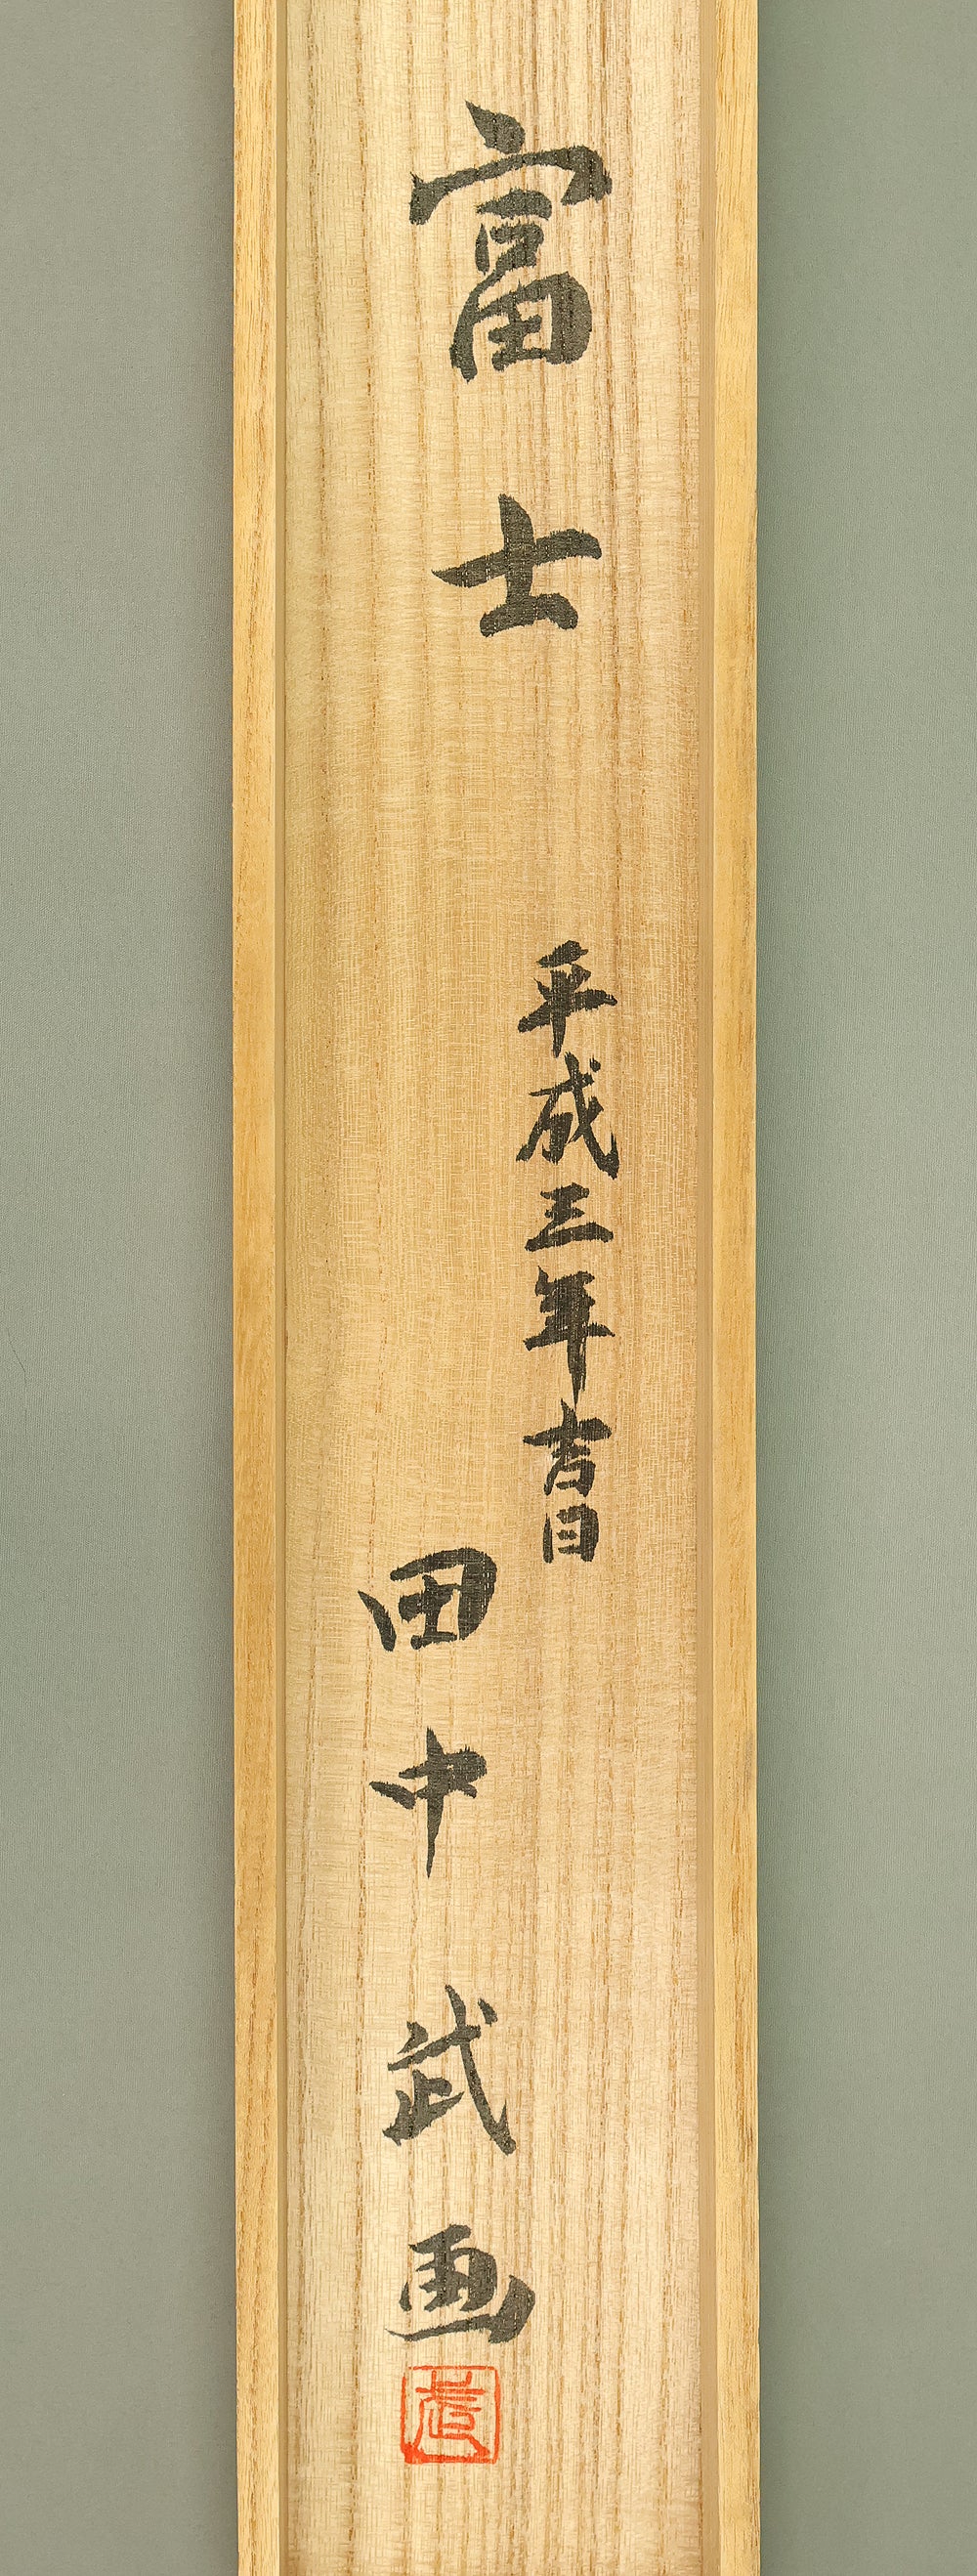 富士
平成三年吉日
田中武画
武